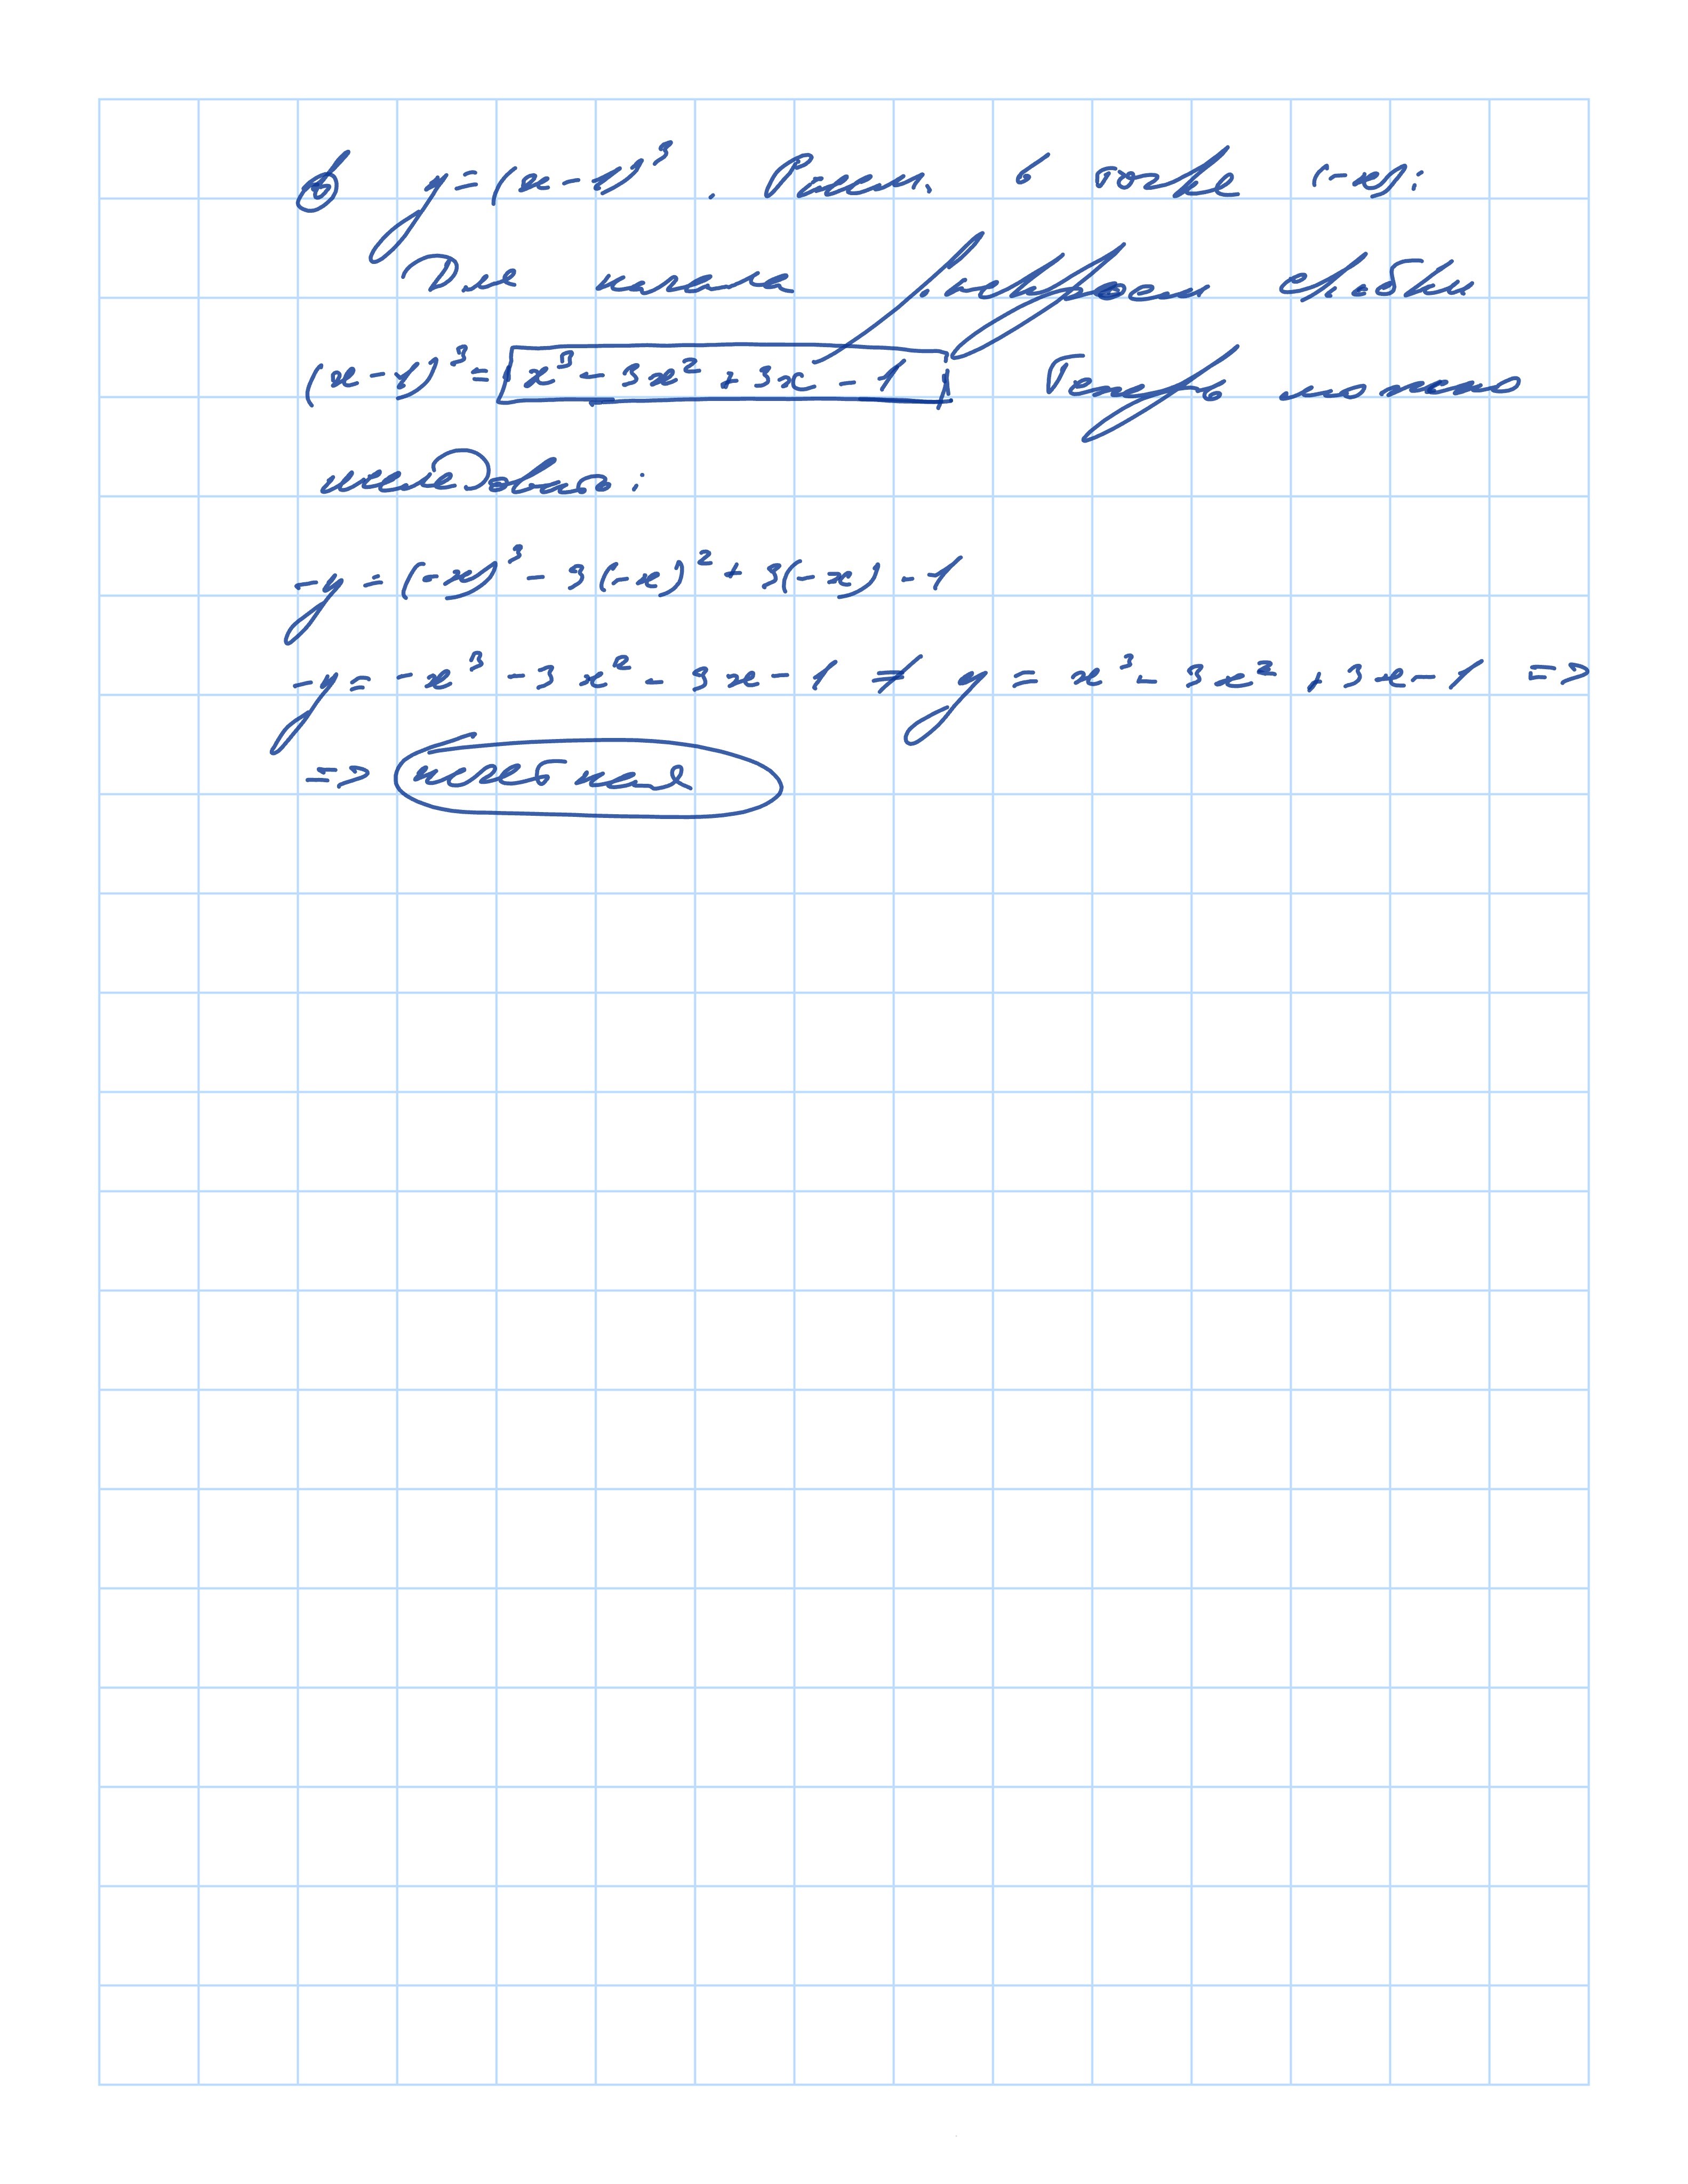 в) y = (x - 1)³. Рассм. в точке (-x):
Для начала раскроем скобки
(x - 1)³ = x³ - 3x² + 3x - 1 Теперь можно
исследовать:
-y = (-x)³ - 3(-x)² + 3(-x) - 1
-y = -x³ - 3x² - 3x - 1 ≠ y = x³ - 3x² + 3x - 1 =>
=> нечётная